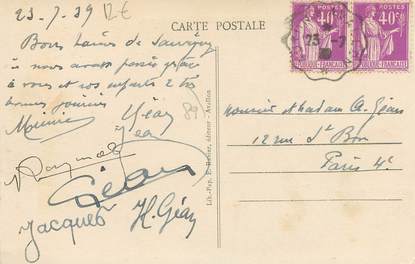 23.7.39 12€
CARTE POSTALE
Bons baisers de Sauvigny
où nous avons passé grâce
à vous et vos enfants 2 très
bonnes journées
Maurice Géan
Géan
89
Raymond
Géan
Jacques H. Géan
Lib.-Pap. éditeur - Avallon
POSTES
40c
RÉPUBLIQUE FRANÇAISE
POSTES
40c
RÉPUBLIQUE FRANÇAISE
23 -7
Monsieur Madame A. Géan
12 rue St Bon
Paris 4e